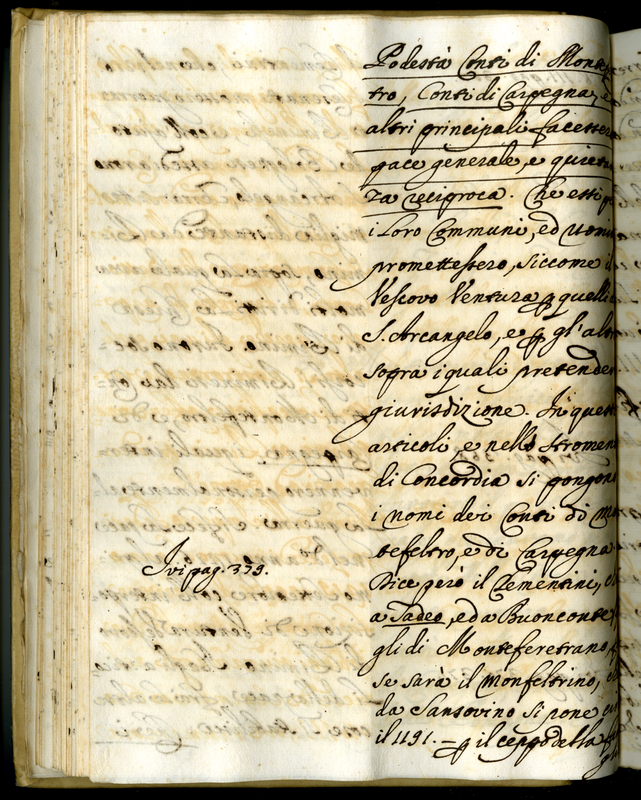 Podestà Conti di Monte
tro, Conti di Carpegna, e
altri principali facessero
pace generale, e quieta
za reciproca. Che essi
i loro Communi, ed uomi
promettessero, siccome il
Vescovo Ventura p quelli
S. Arcangelo, e p gl'al
sopra i quali pretende
giurisdizione. In quest
articoli, e nello stromen
di Concordia si pongono
i nomi dei Conti di
tefeltro, e di Carpegna
Ivi pag. 379.
Dice però il Clementini,
a Tadeo, ed a Buonconte
gli di Monteferetrano,
se sarà il monfeltrino,
da Sansovino si pone
il 1191. — p il ceppo della